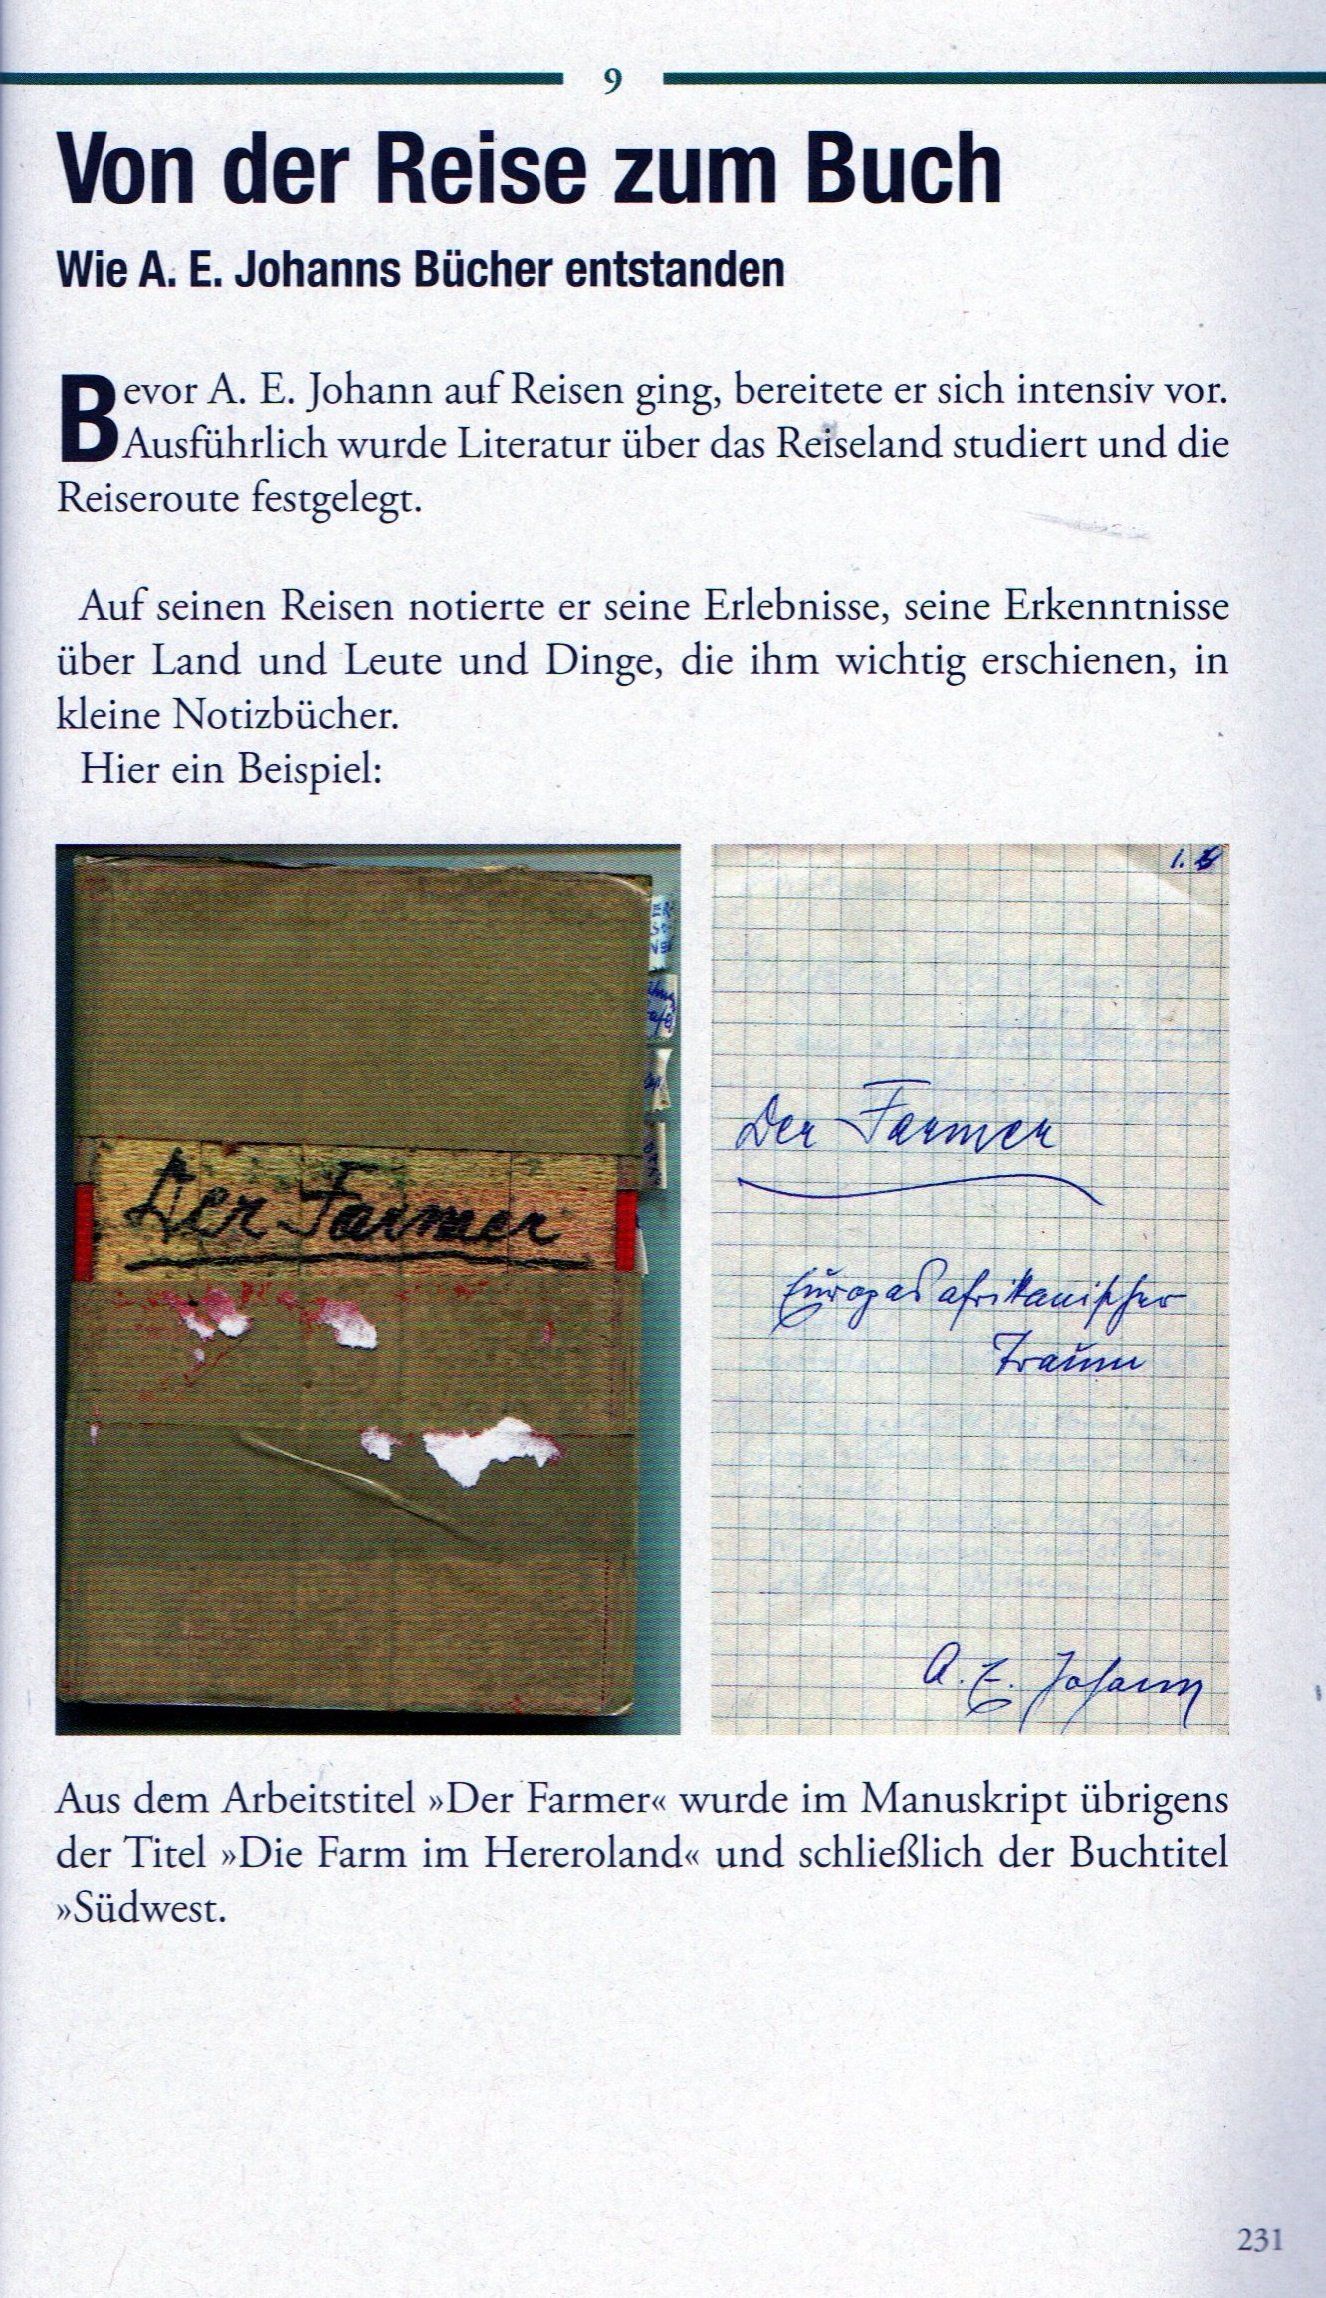 9
Von der Reise zum Buch
Wie A. E. Johanns Bücher entstanden
Bevor A. E. Johann auf Reisen ging, bereitete er sich intensiv vor.
Ausführlich wurde Literatur über das Reiseland studiert und die
Reiseroute festgelegt.
Auf seinen Reisen notierte er seine Erlebnisse, seine Erkenntnisse
über Land und Leute und Dinge, die ihm wichtig erschienen, in
kleine Notizbücher.
Hier ein Beispiel:
Der Farmer
1.
Der Farmer
Europas afrikanischer
Traum
A. E. Johann
Aus dem Arbeitstitel »Der Farmer« wurde im Manuskript übrigens
der Titel »Die Farm im Hereroland« und schließlich der Buchtitel
»Südwest.
231